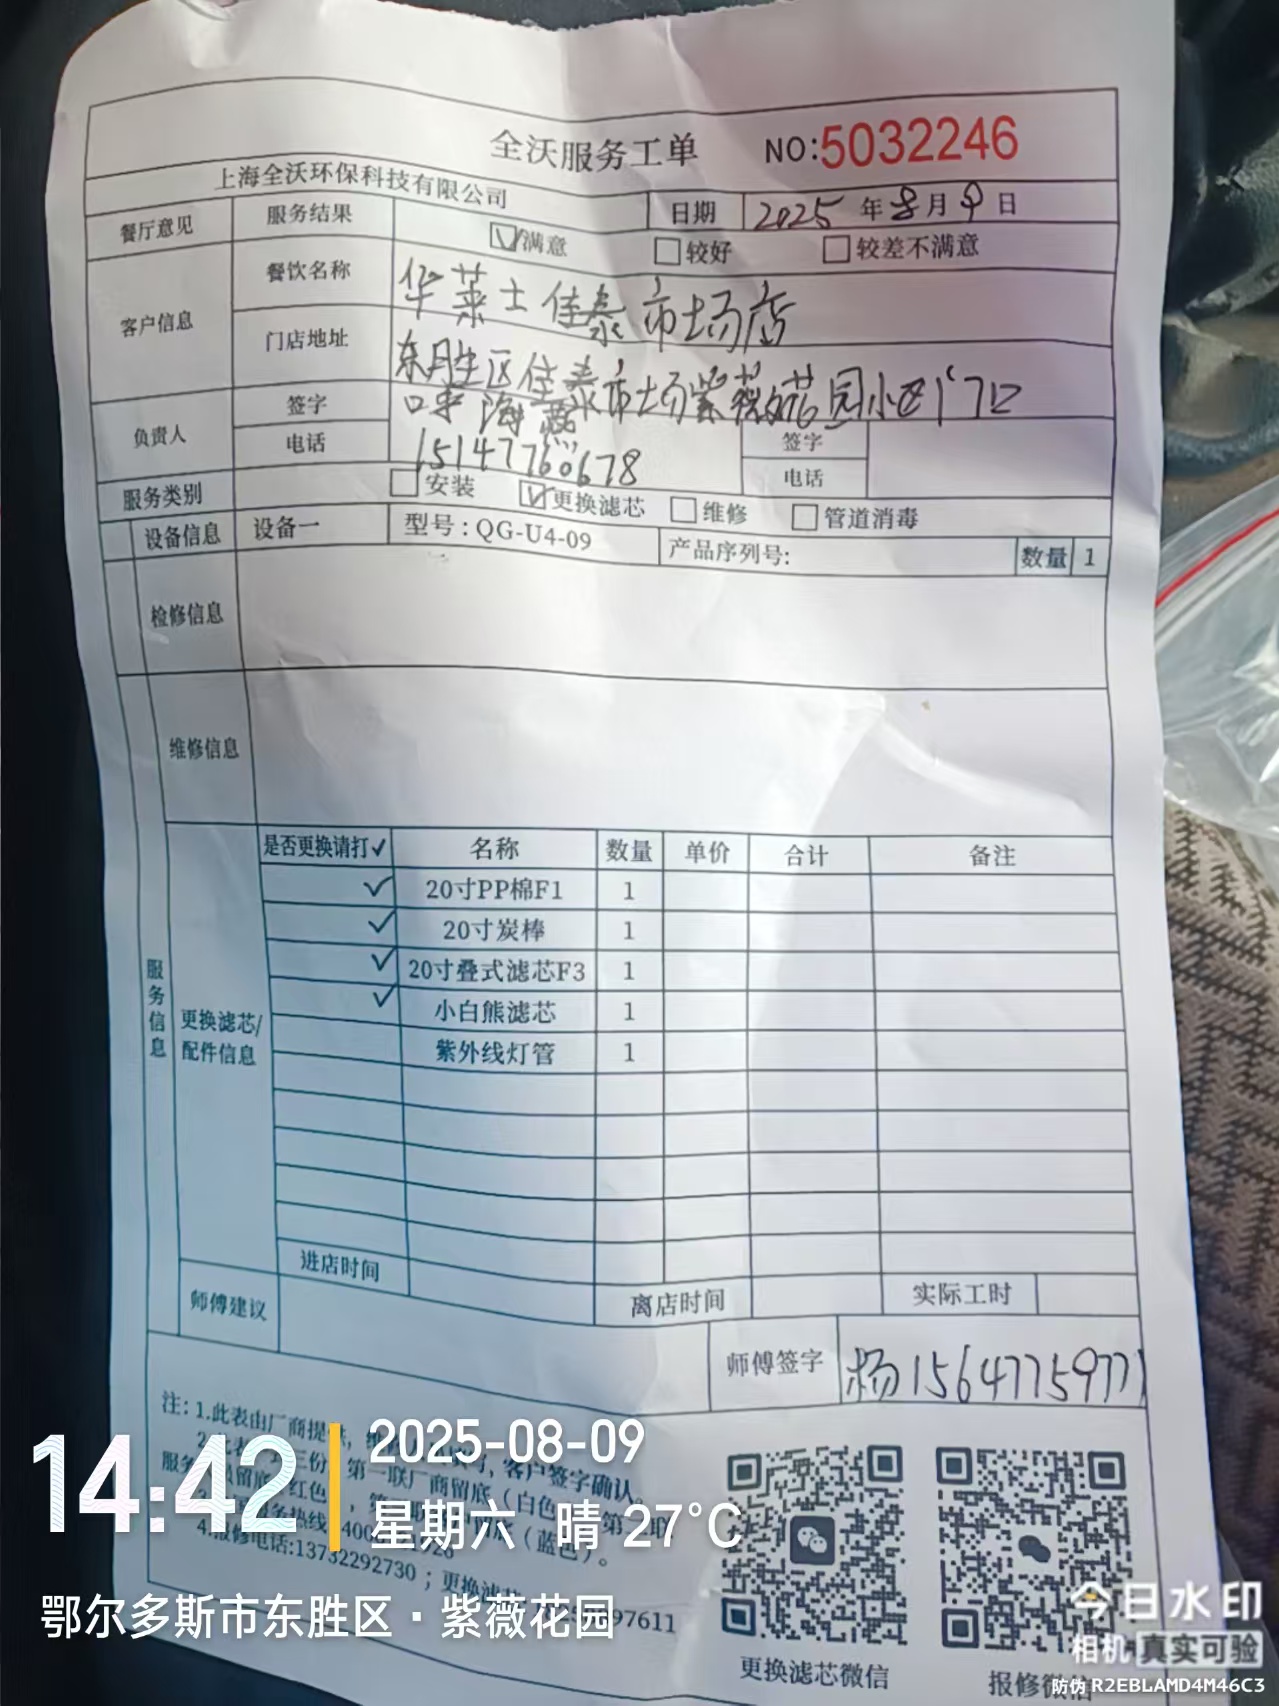 全沃服务工单 NO:5032246
上海全沃环保科技有限公司 日期 2025 年 8 月 9 日
餐厅意见 服务结果 ☑满意 ☐较好 ☐较差不满意
客户信息 餐饮名称 华莱士佳泰市场店
门店地址 东胜区佳泰市场紫薇花园小区门口
负责人 签字 海燕 签字
电话 15147760678 电话
服务类别 ☐安装 ☑更换滤芯 ☐维修 ☐管道消毒
设备信息 设备一 型号:QG-U4-09 产品序列号: 数量 1
检修信息
维修信息
服务信息
更换滤芯/配件信息
是否更换请打✓ 名称 数量 单价 合计 备注
✓ 20寸PP棉F1 1
✓ 20寸炭棒 1
✓ 20寸叠式滤芯F3 1
✓ 小白熊滤芯 1
紫外线灯管 1
进店时间 离店时间 实际工时
师傅建议
师傅签字 杨 15647759771
注: 1.此表由厂商提 客户签字确认。
第一联厂商留底(白色 第二联
服务 留底 红色 (蓝色)。
务热线 400
4.报修电话:13732292730;更换滤 697611
更换滤芯微信 报修微信
14:42 2025-08-09
星期六 晴 27°C
鄂尔多斯市东胜区·紫薇花园
今日水印
相机 真实可验
防伪 R2EBLAMD4M46C3